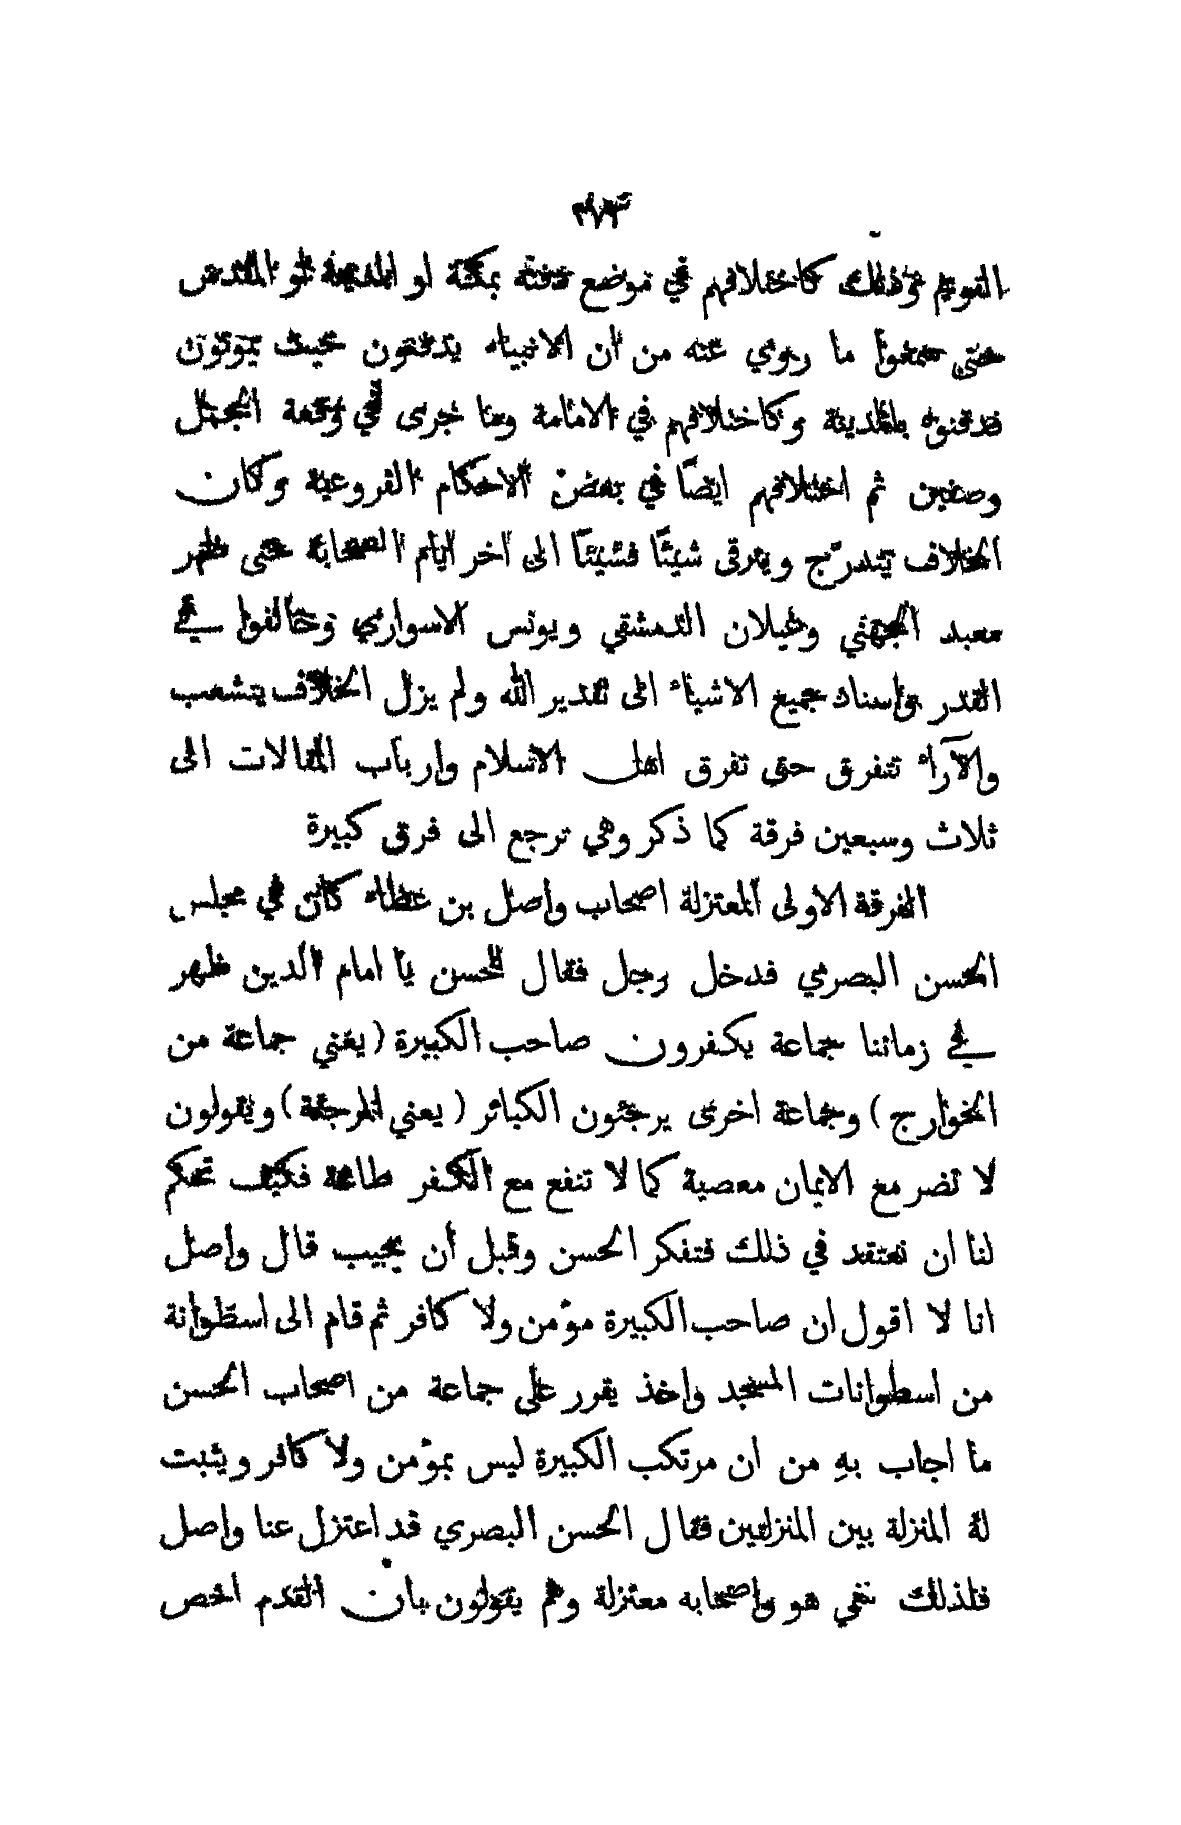 القويم وذلك كاختلافهم في موضع دفنه بمكة او المدينة او المقدس
حتى سمعوا ما روي عنه من ان الانبياء يدفنون حيث يموتون
فدفنوه بالمدينة وكاختلافهم في الامامة وما جرى في وقعة الجمل
وصفين ثم اختلافهم ايضًا في بعض الاحكام الفروعية وكان
الخلاف يتدرّج ويترقى شيئًا فشيئًا الى آخر ايام الصحابة حتى ظهر
معبد الجهني وغيلان الدمشقي ويونس الاسواري وخالفوا في
القدر واسناد جميع الاشياء الى تقدير الله ولم يزل الخلاف يتشعب
والآراء تتفرق حتى تفرق اهل الاسلام وارباب المقالات الى
ثلاث وسبعين فرقة كما ذكر وهي ترجع الى فرق كبيرة
الفرقة الاولى المعتزلة اصحاب واصل بن عطاء كان في مجلس
الحسن البصري فدخل رجل فقال للحسن يا امام الدين ظهر
في زماننا جماعة يكفرون صاحب الكبيرة (يعني جماعة من
الخوارج) وجماعة اخرى يرجئون الكبائر (يعني المرجئة) ويقولون
لا تضر مع الايمان معصية كما لا تنفع مع الكفر طاعة فكيف تحكم
لنا ان نعتقد في ذلك فتفكر الحسن وقبل أن يجيب قال واصل
انا لا اقول ان صاحب الكبيرة مؤمن ولا كافر ثم قام الى اسطوانة
من اسطوانات المسجد واخذ يقرر على جماعة من اصحاب الحسن
ما اجاب بهِ من ان مرتكب الكبيرة ليس بمؤمن ولا كافر ويثبت
لهُ المنزلة بين المنزلتين فقال الحسن البصري قد اعتزل عنا واصل
فلذلك سمي هو واصحابه معتزلة وهم يقولون بان القدم اخص